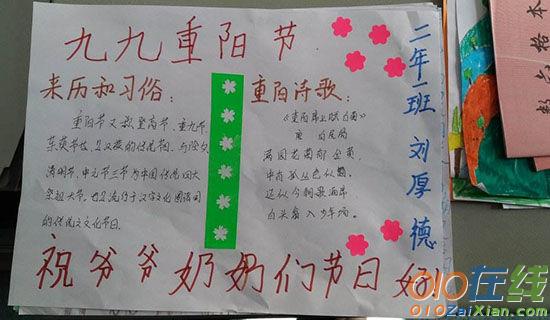 九九重阳节
来历和习俗：
重阳节又称登高节、重九节、
茱萸节等，是汉族的传统节日，与除夕、
清明节、中元节三节为中国传统四大
祭祖大节。也是流行于汉字文化圈诸国
的传统文化节日。
重阳诗歌：
满园花菊郁金黄，
中有孤丛色似霜。
还似今朝歌酒席，
白头翁入少年场。
二年一班 刘厚德
祝爷爷奶奶们节日好
数 格本
010在线
010ZaiXian.com